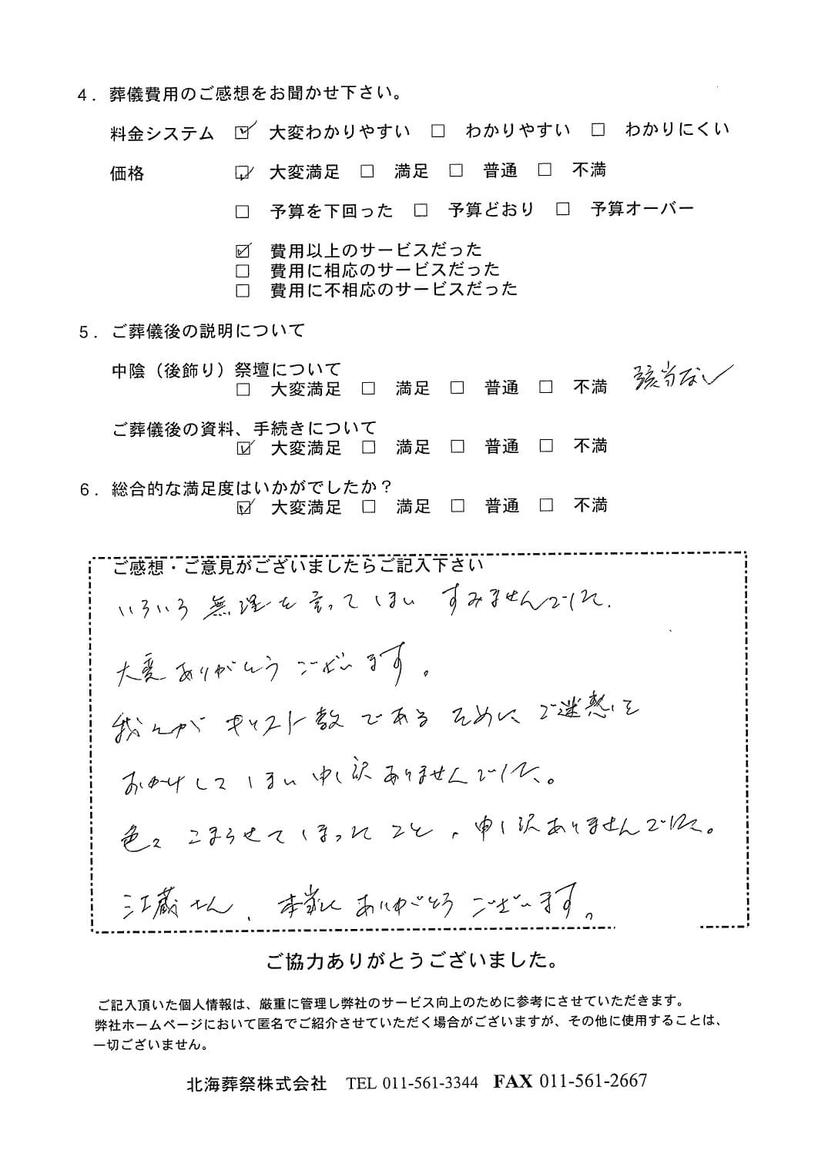 ４．葬儀費用のご感想をお聞かせ下さい。
料金システム ☑ 大変わかりやすい □ わかりやすい □ わかりにくい
価格 ☑ 大変満足 □ 満足 □ 普通 □ 不満
□ 予算を下回った □ 予算どおり □ 予算オーバー
☑ 費用以上のサービスだった
□ 費用に相応のサービスだった
□ 費用に不相応のサービスだった
５．ご葬儀後の説明について
中陰（後飾り）祭壇について
□ 大変満足 □ 満足 □ 普通 □ 不満 該当なし
ご葬儀後の資料、手続きについて
☑ 大変満足 □ 満足 □ 普通 □ 不満
６．総合的な満足度はいかがでしたか？
☑ 大変満足 □ 満足 □ 普通 □ 不満
ご感想・ご意見がございましたらご記入下さい
いろいろ無理を言ってしまい すみませんでした.
大変ありがとうございます。
キリスト教であるために、ご迷惑を
おかけしてしまい申し訳ありませんでした。
色々こまらせてしまったこと、申し訳ありませんでした。
さん、本当にありがとうございます。
ご協力ありがとうございました。
ご記入頂いた個人情報は、厳重に管理し弊社のサービス向上のために参考にさせていただきます。
弊社ホームページにおいて匿名でご紹介させていただく場合がございますが、その他に使用することは、
一切ございません。
北海葬祭株式会社 TEL 011-561-3344 FAX 011-561-2667